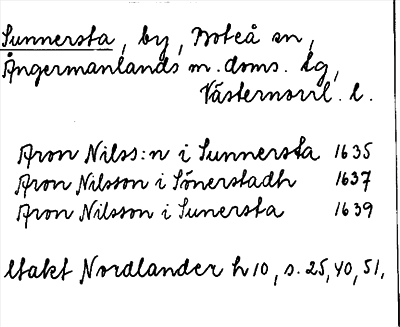 Sunnersta, by, Boteå sn,
Ångermanlands m. doms. lg,
Västernorrl. l.
Aron Nilss:n i Sunnersta 1635
Aron Nilsson i Sönerstadh 1637
Aron Nilsson i Sunersta 1639
Utakt Nordlander h 10, s. 25, 40, 51,